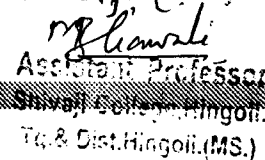 Assistant Professor
Shivaji College, Hingoli.
Tq.& Dist.Hingoli.(MS.)